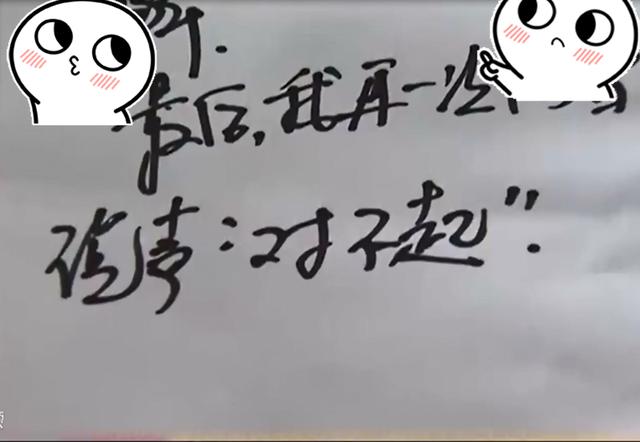 最后,我再一次
说声:对不起".
频